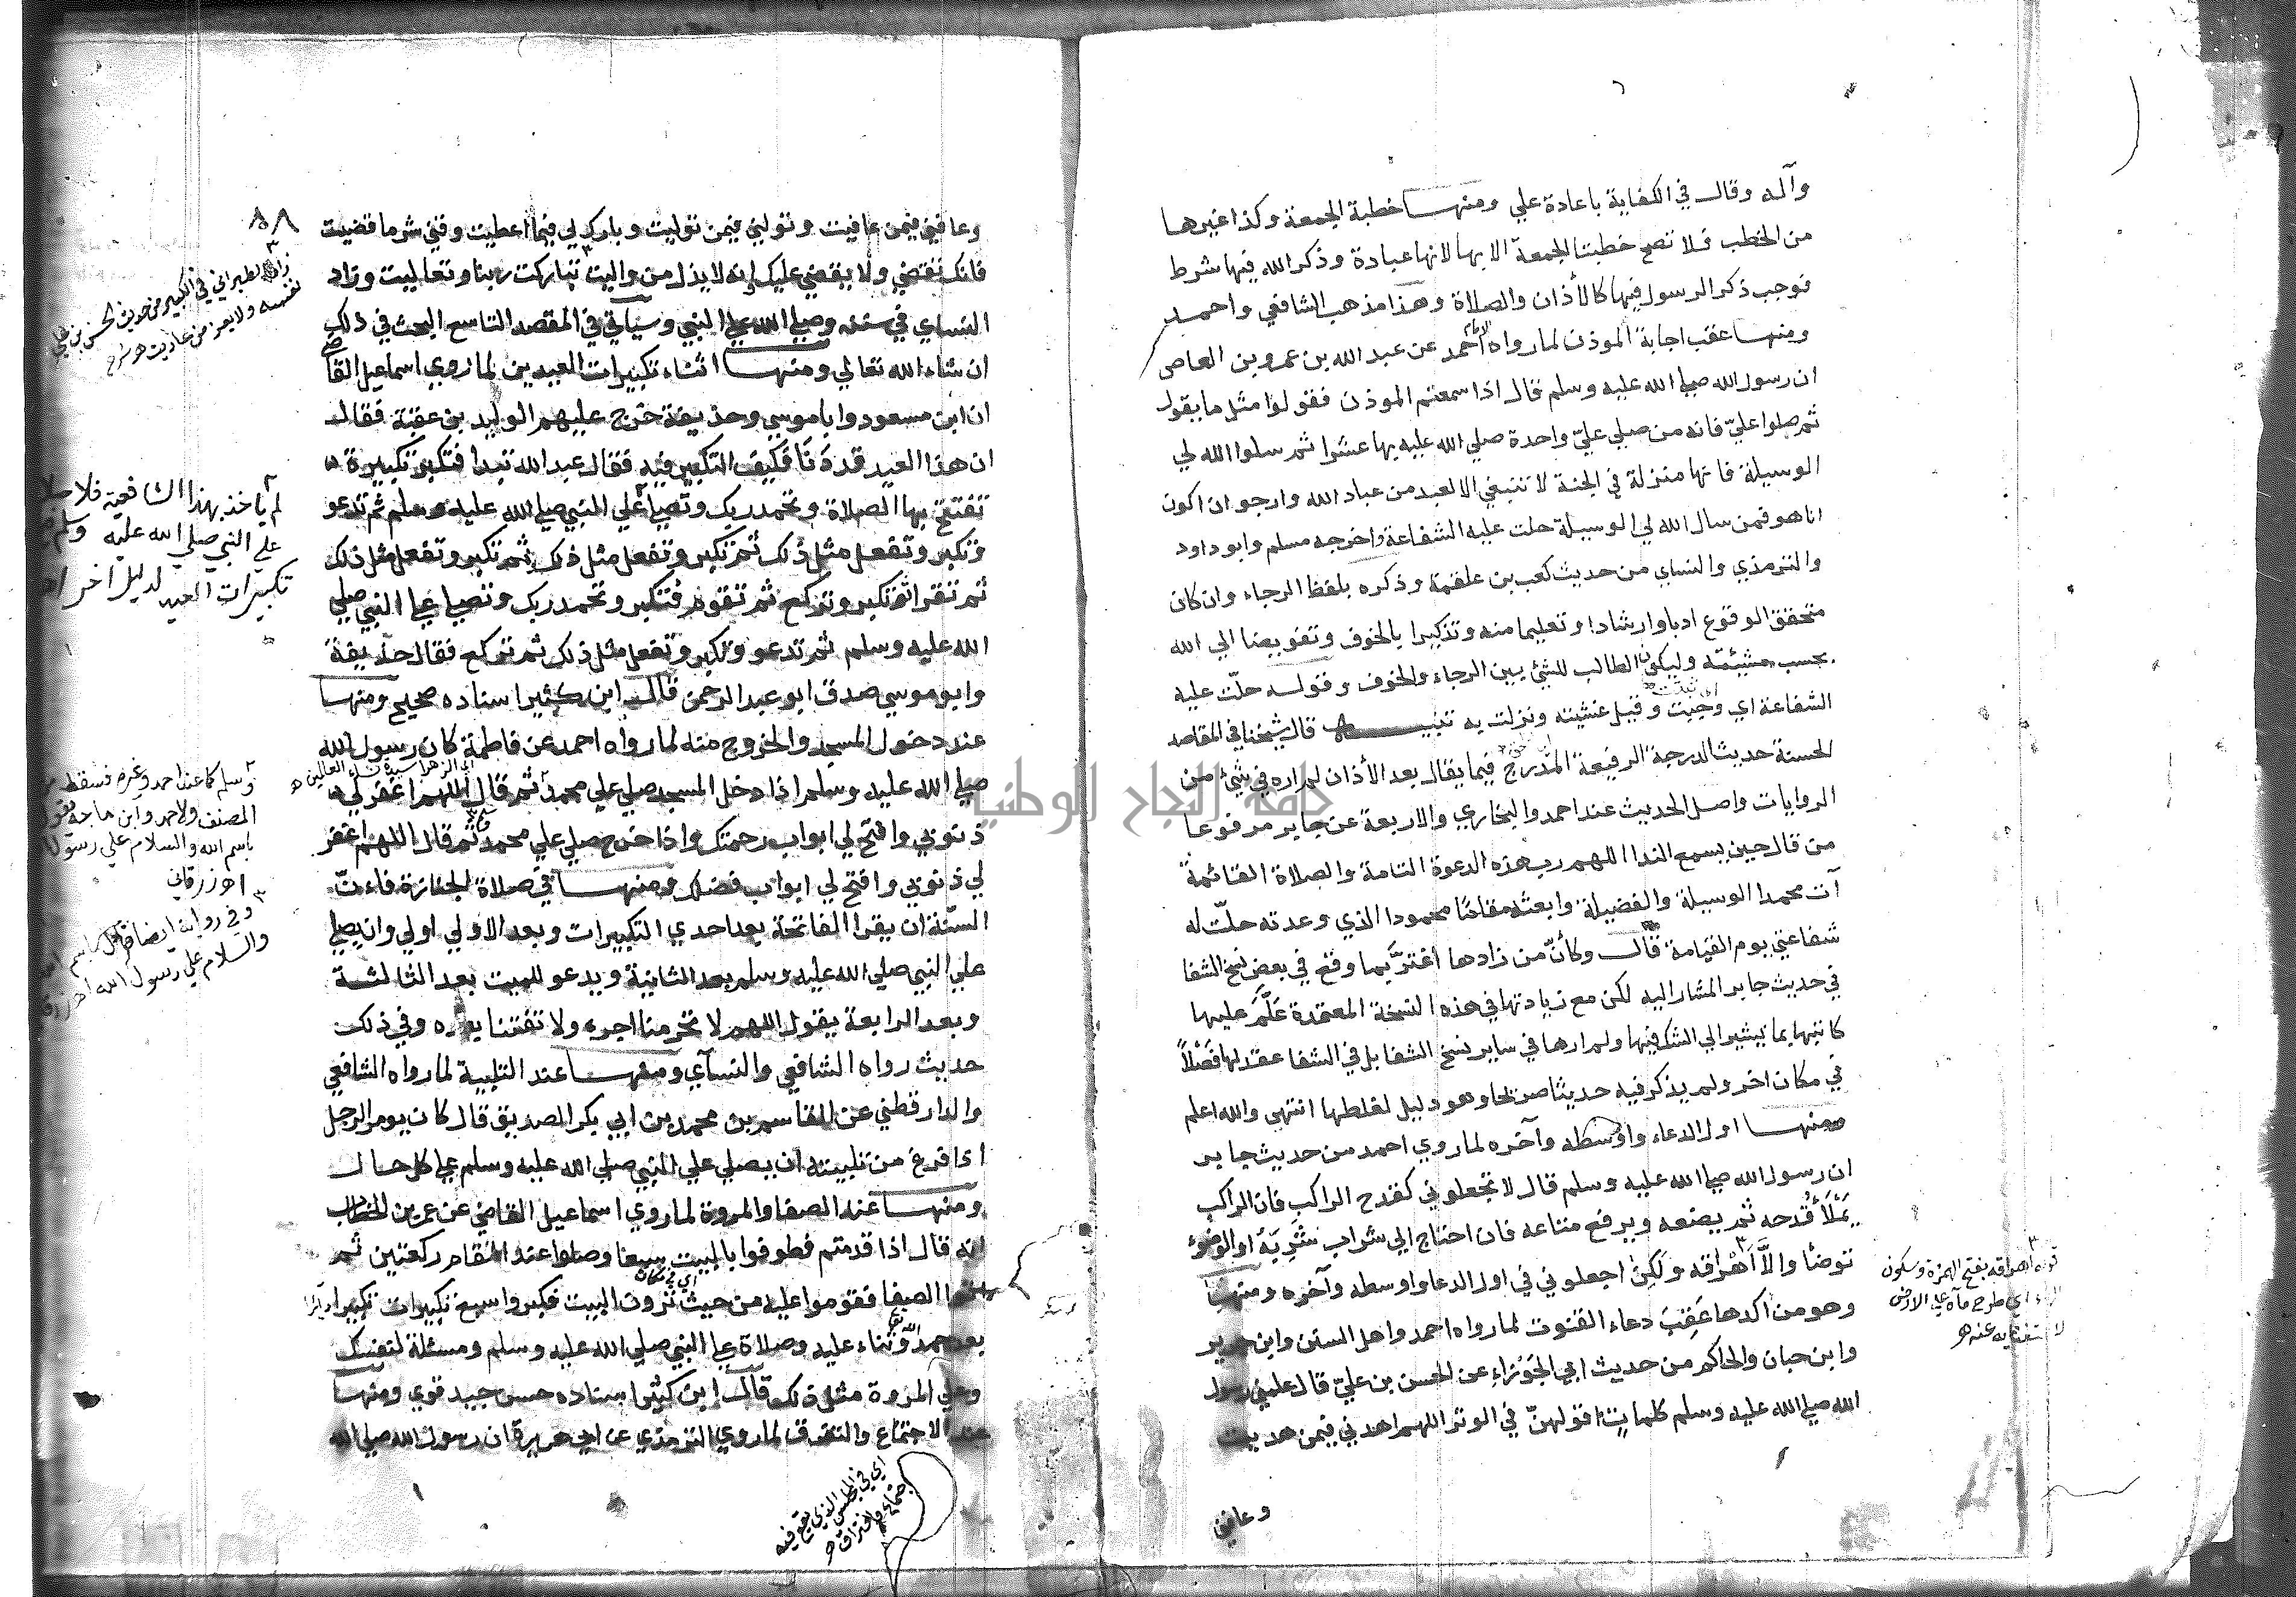 وآله وقال في الكفاية باعادة علي ومنها خطبة الجمعة وكذا غيرها
من الخطب فلا تصح خطبتا الجمعة الا بها لانها عبادة وذكر الله فيها شرط
فوجب ذكر الرسول فيها كالأذان والصلاة وهذا مذهب الشافعي واحمد
ومنها عقب اجابة الموذن لما رواه احمد عن عبد الله بن عمرو بن العاصي
ان رسول الله صلي الله عليه وسلم قال اذا سمعتم الموذن فقولوا مثل ما يقول
ثم صلوا عليّ فانه من صلي عليّ واحدة صلي الله عليه بها عشرا ثم سلوا الله لي
الوسيلة فانها منزلة في الجنة لا تنبغي الا لعبد من عباد الله وارجو ان اكون
انا هو فمن سال الله لي الوسيلة حلت عليه الشفاعة واخرجه مسلم وابو داود
والترمذي والنساي من حديث كعب بن علقمة وذكره بلفظ الرجاء وان كان
متحقق الوقوع ادبا وارشادا وتعليما منه وتذكيرا بالخوف وتفويضا الي الله
بحسب مشيئته وليكون الطالب للشئ بين الرجاء والخوف وقوله حلّت عليه
الشفاعة اي وجبت وقيل غشيته ونزلت به تنبيه قال شيخنا في المقاصد
الحسنة حديث الدرجة الرفيعة المدرج فيما يقال بعد الأذان لم اره في شئ من
الروايات واصل الحديث عند احمد والبخاري والاربعة عن جابر مرفوعا
من قال حين يسمع الندا اللهم رب هذه الدعوة التامة والصلاة القائمة
آت محمدا الوسيلة والفضيلة وابعثه مقاما محمودا الذي وعدته حلّت له
شفاعتي يوم القيامة قال وكأنّ من زادها اغترّ بما وقع في بعض نسخ الشفا
في حديث جابر المشار اليه لكن مع زيادتها في هذه النسخة المعتمدة علّم عليها
كاتبها بما يشير الي الشك فيها ولم ارها في ساير نسخ الشفا بل في الشفا عقد لها فصلاً
في مكان اخر ولم يذكر فيه حديثا صريحا وهو دليل لغلطها انتهي والله اعلم
ومنها اول الدعاء واوسطه وآخره لما روي احمد من حديث جابر
ان رسول الله صلي الله عليه وسلم قال لا تجعلوني كقدح الراكب فان الراكب
يملأ قدحه ثم يضعه ويرفع متاعه فان احتاج الي شراب شربه او الوضوء
توضأ والّا اهراقه ولكن اجعلوني في اول الدعا واوسطه وآخره ومنها
وهو من اكدها عقب دعاء القنوت لما رواه احمد واهل السنن وابن جرير
وابن حبان والحاكم من حديث ابي الجوزاء عن الحسن بن عليّ قال علمني رسول
الله صلي الله عليه وسلم كلمات اقولهنّ في الوتر اللهم اهدني فيمن هديت
وعافني
قوله اهراقه بفتح الهمزة وسكون
اي طرح ماءه علي الارض
عنه
٥٨
وعافني فيمن عافيت وتولني فيمن توليت وبارك لي فيما اعطيت وقني شر ما قضيت
فانك تقضي ولا يقضي عليك إنه لا يذل من واليت تباركت ربنا وتعاليت وزاد
النساي في سننه وصلي الله علي النبي وسياتي في المقصد التاسع البحث في ذلك
ان شاء الله تعالي ومنها اثناء تكبيرات العيدين لما روي اسماعيل القاضي
ان ابن مسعود وابا موسي وحذيفة خرج عليهم الوليد بن عقبة فقال
ان هذا العيد قد دنا فكيف التكبير فيه فقال عبد الله تبدا فتكبر تكبيرة
تفتتح بها الصلاة وتحمد ربك وتصلي علي النبي صلي الله عليه وسلم ثم تدعو
وتكبر وتفعل مثل ذلك ثم تكبر وتفعل مثل ذلك ثم تكبر وتفعل مثل ذلك
ثم تقرا ثم تكبر وتركع ثم تقوم فتكبر وتحمد ربك وتصلي علي النبي صلي
الله عليه وسلم ثم تدعو وتكبر وتفعل مثل ذلك ثم تركع فقال حذيفة
وابو موسي صدق ابو عبد الرحمن قال ابن كثير اسناده صحيح ومنها
عند دخول المسجد والخروج منه لما رواه احمد عن فاطمة كان رسول الله
صلي الله عليه وسلم اذا دخل المسجد صلي علي محمد ثم قال اللهم اغفر لي
ذنوبي وافتح لي ابواب رحمتك واذا خرج صلي علي محمد ثم قال اللهم اغفر
لي ذنوبي وافتح لي ابواب فضلك ومنها في صلاة الجنازة فان
السنّة ان يقرا الفاتحة بعد احدي التكبيرات وبعد الاولي اولي وان يصلي
علي النبي صلي الله عليه وسلم بعد الثانية ويدعو للميت بعد الثالثة
وبعد الرابعة يقول اللهم لا تحرمنا اجره ولا تفتنا بعده وفي ذلك
حديث رواه الشافعي والنسآي ومنها عند التلبية لما رواه الشافعي
والدارقطني عن القاسم بن محمد بن ابي بكر الصديق قال كان يومر الرجل
اذا فرغ من تلبيته ان يصلي علي النبي صلي الله عليه وسلم علي كل حال
ومنها عند الصفا والمروة لما روي اسماعيل القاضي عن عمر بن الخطاب
انه قال اذا قدمتم فطوفوا بالبيت سبعا وصلوا عند المقام ركعتين ثم
الصفا فقوموا عليه من حيث ترون البيت فكبروا سبع تكبيرات تكبيرا
بعد حمد الله وثناء عليه وصلاة علي النبي صلي الله عليه وسلم ومسئلة لنفسك
وعلي المروة مثل ذلك قال ابن كثير اسناده حسن جيد قوي ومنها
عند الاجتماع والتفرق لما روي الترمذي عن ابي هريرة ان رسول الله صلي الله
زاد الطبراني في الكبير من حديث الحسن بن علي
ولا يعز من عاديت
لم يأخذ بهذا الشافعية فلا
علي النبي صلي الله عليه وسلم
تكبيرات العيد لدليل اخر
وسلم كما عند احمد وغيره فسقط
المصنف ولاحمد وابن ماجة
باسم الله والسلام علي رسول
اهـ زرقاني
وفي رواية ايضا قال باسم
والسلام علي رسول الله
اي في المجلس الذي يقع فيه
اجتماع وافتراق
جامعة النجاح الوطنية